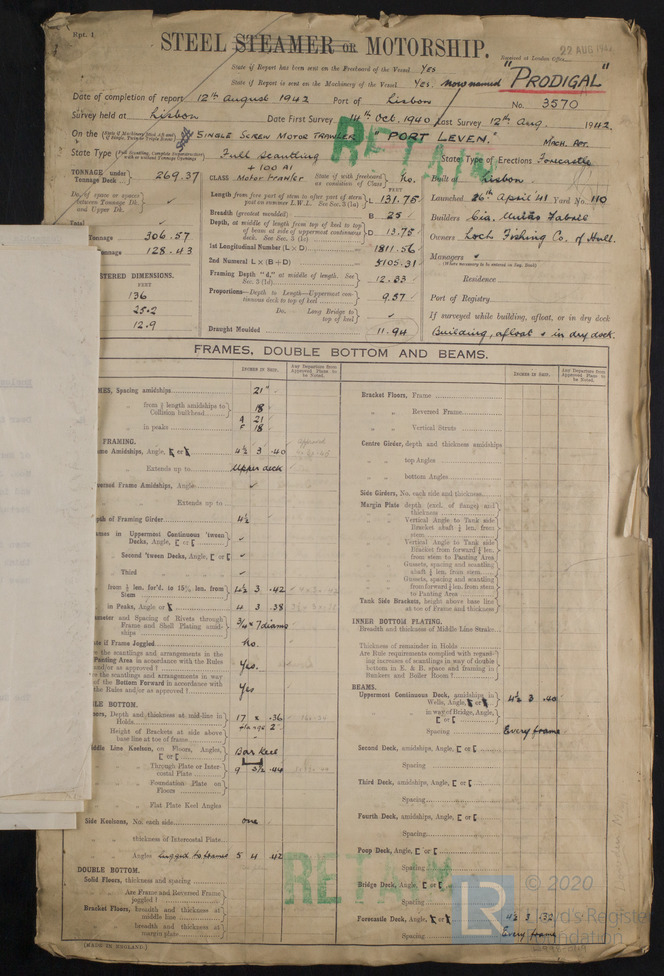 Rpt. 1.
STEEL STEAMER OR MOTORSHIP.
22 AUG
Received at London Office
State if Report has been sent on the Freeboard of the Vessel Yes
State if Report is sent on the Machinery of the Vessel Yes. now named "PRODIGAL"
Date of completion of report 12th August 1942 Port of Lisbon No. 3570
Survey held at Lisbon Date First Survey 14th Oct. 1940 Last Survey 12th Aug. 1942.
On the SINGLE SCREW MOTOR TRAWLER "PORT LEVEN." MACH. AFT.
State Type Full scantling State Type of Erections Forecastle
RETAIN
+100 A1
TONNAGE under Tonnage Deck 269.37
CLASS Motor trawler State if with freeboard as condition of Class No.
Built at Lisbon
FEET
Length from fore part of stem to after part of stern post on summer L.W.L. See Sec. 3 (1a) L 131.75
Launched 26th April '41 Yard No. 110
Do. of space or spaces between Tonnage Dk. and Upper Dk.
Breadth (greatest moulded) B 25
Builders Cia.
Depth, at middle of length from top of keel to top of beam at side of uppermost continuous deck. See Sec. 3 (1c) D 13.75
Owners Loch Fishing Co. of Hull.
Total
Tonnage 306.57
1st Longitudinal Number (L × D) 1811.56
Tonnage 128.43
2nd Numeral L × (B + D) 5105.31
Managers
Residence
STERED DIMENSIONS.
FEET
Framing Depth "d," at middle of length. See Sec. 3 (1d) 12.33
136
Proportions—Depth to Length—Uppermost continuous deck to top of keel 9.57
Port of Registry
25.2
Do. Long Bridge to top of keel
If surveyed while building, afloat, or in dry dock
12.9
Draught Moulded 11.94
Building, afloat & in dry dock.
FRAMES, DOUBLE BOTTOM AND BEAMS.
INCHES IN SHIP.
Any Departure from Approved Plans to be Noted.
MES, Spacing amidships 21"
from ⅗ length amidships to Collision bulkhead 18
in peaks A 21 F 18
FRAMING.
ame Amidships, Angle, [ or [ 4½ 3 .40
Extends up to Upper deck
versed Frame Amidships, Angle
Extends up to
pth of Framing Girder 4½
ames in Uppermost Continuous 'tween Decks, Angle, [ or [
Second 'tween Decks, Angle, [ or [
Third
from ⅗ len. for'd. to 15% len. from Stem 4½ 3 .42
in Peaks, Angle or [ 4 3 .38
ameter and Spacing of Rivets through Frame and Shell Plating amidships ¾ × 7 diams
te if Frame Joggled No.
e the scantlings and arrangements in the Panting Area in accordance with the Rules and/or as approved? Yes.
e the scantlings and arrangements in way of the Bottom Forward in accordance with the Rules and/or as approved? Yes
LE BOTTOM.
oors, Depth and thickness at mid-line in Holds 17 × .36
flange 2"
Height of Brackets at side above base line at toe of frame
iddle Line Keelson, on Floors, Angles, [ or [ Bar Keel
Through Plate or Intercostal Plate 9 3½ .44
Foundation Plate on Floors
Flat Plate Keel Angles
Side Keelsons, No. each side one
thickness of Intercostal Plate
Angles lugged to frames 5 4 .42
DOUBLE BOTTOM.
Solid Floors, thickness and spacing
Are Frame and Reversed Frame joggled?
Bracket Floors, breadth and thickness at middle line
breadth and thickness at margin plate
(MADE IN ENGLAND.)
INCHES IN SHIP.
Any Departure from Approved Plans to be Noted.
Bracket Floors, Frame
Reversed Frame
Vertical Struts
Centre Girder, depth and thickness amidships
top Angles
bottom Angles
Side Girders, No. each side and thickness
Margin Plate depth (excl. of flange) and thickness
Vertical Angle to Tank side Bracket abaft ¼ len. from stem
Vertical Angle to Tank side Bracket from forward ¼ len. from stem to Panting Area
Gussets, spacing and scantling abaft ¼ len. from stem
Gussets, spacing and scantling from forward ¼ len. from stem to Panting Area
Tank Side Brackets, height above base line at toe of Frame and thickness
INNER BOTTOM PLATING.
Breadth and thickness of Middle Line Strake
Thickness of remainder in Holds
Are Rule requirements complied with regarding increases of scantlings in way of double bottom in E. & B. space and framing in Bunkers and Boiler Room?
BEAMS.
Uppermost Continuous Deck, amidships in Wells, Angle, [ or [ 4½ 3 .40
in way of Bridge, Angle, [ or [
Spacing Every frame
Second Deck, amidships, Angle, [ or [
Spacing
Third Deck, amidships, Angle, [ or [
Spacing
Fourth Deck, amidships, Angle, [ or [
Spacing
Poop Deck, Angle, [ or [
Spacing
RETAIN
Bridge Deck, Angle, [ or [
Spacing
Forecastle Deck, Angle, [ or [ 4½ 3 .32
Spacing Every frame
LR
© 2020
Lloyd's Register
Foundation